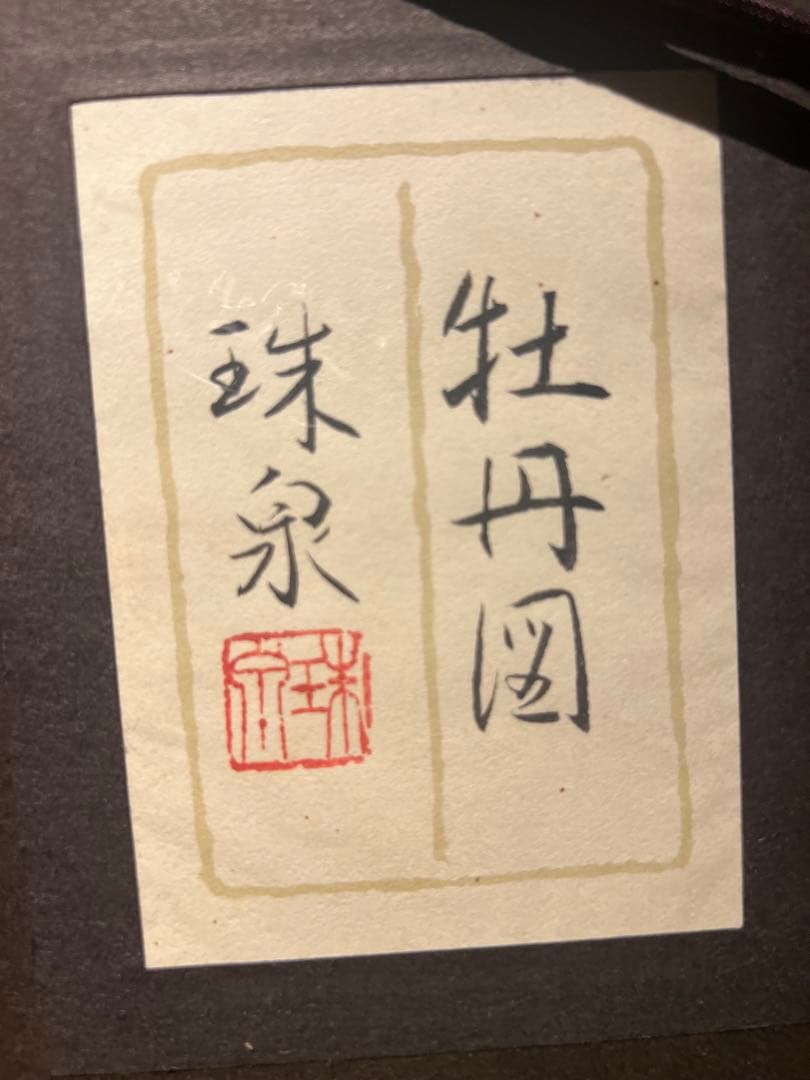 牡丹図
珠泉
珠泉